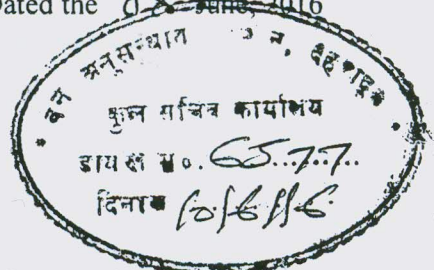 Dated the 08 June, 2016
वन अनुसन्धान न, देहरादून
कुल सचिव कार्यालय
डायरी नं०. 6577
दिनांक 10/6/16